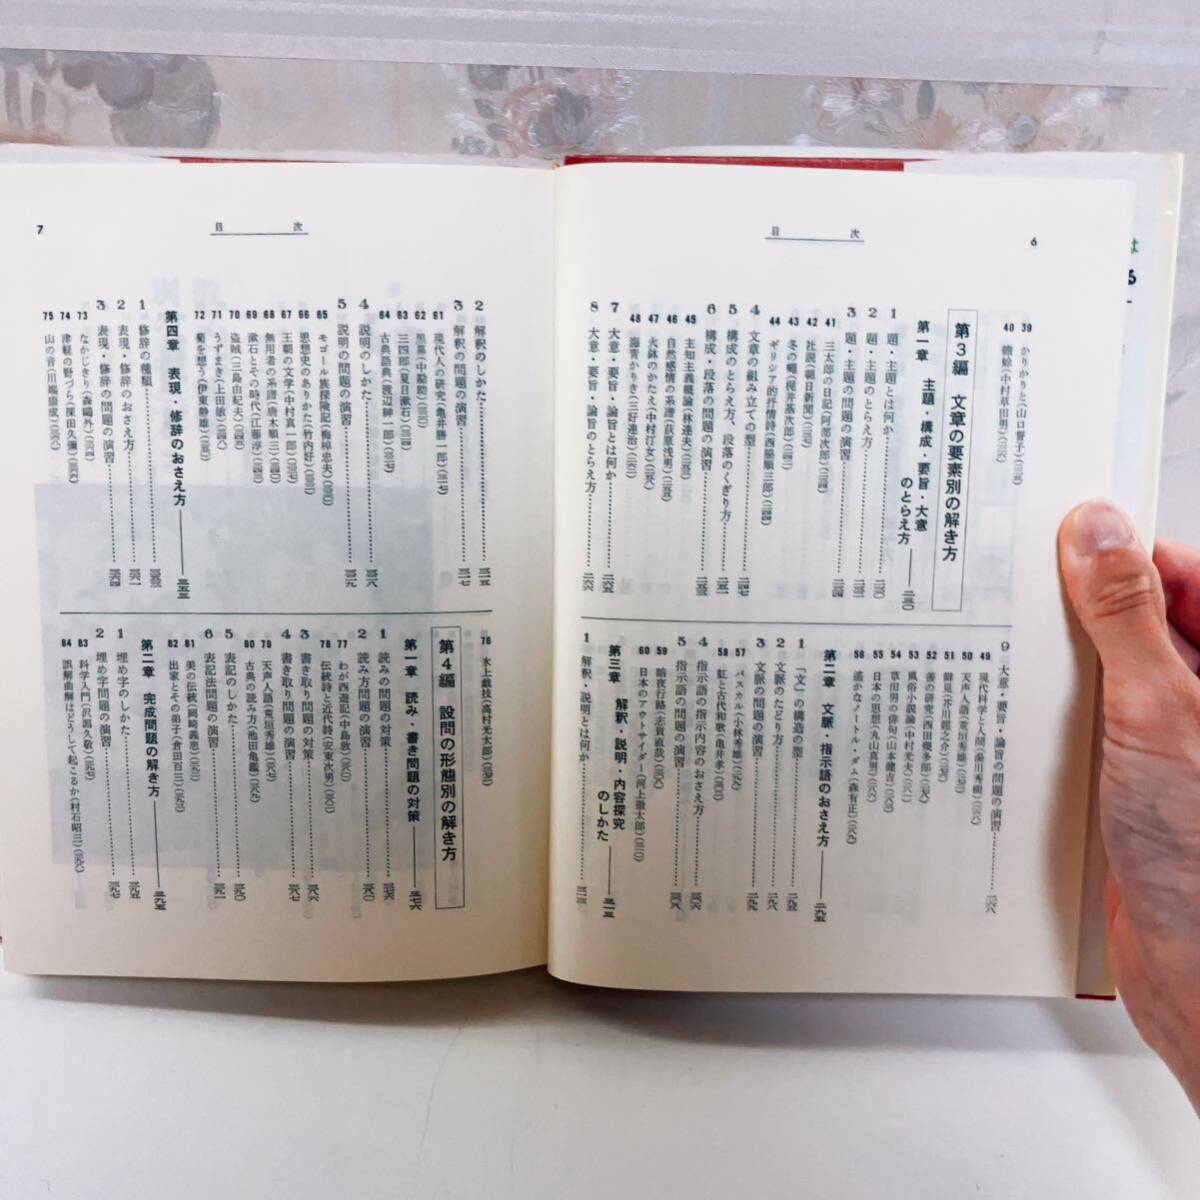 6
目次
39 かりかりと(山口誓子)
40 蟾蜍(中村草田男)
第3編 文章の要素別の解き方
第一章 主題・構成・要旨・大意のとらえ方 二三〇
1 題・主題とは何か
2 題・主題のとらえ方
3 題・主題の問題の演習
41 三太郎の日記(阿部次郎)
42 社説(朝日新聞)
43 冬の蠅(梶井基次郎)
44 ギリシア的抒情詩(西脇順三郎)
4 文章の組み立ての型 二四七
5 構成のとらえ方、段落のくぎり方 二五一
6 構成・段落の問題の演習 二五三
45 主知主義概論(林達夫)
46 自然感情の系譜(荻原浅男)
47 火鉢のかたえ(中村汀女)
48 海青かりき(三好達治)
7 大意・要旨・論旨とは何か 二六五
8 大意・要旨・論旨のとらえ方 二六六
9 大意・要旨・論旨の問題の演習 二六八
49 現代科学と人間(湯川秀樹)
50 天声人語(荒垣秀雄)
51 御見(芥川龍之介)
52 善の研究(西田幾多郎)
53 風俗小説論(中村光夫)
54 草田男の俳句(山本健吉)
55 日本の思想(丸山真男)
56 遥かなノートル・ダム(森有正)
第二章 文脈・指示語のおさえ方 二九五
1 「文」の構造の型 二九五
2 文脈のたどり方
3 文脈の問題の演習
57 パスカル(小林秀雄)
58 虹と古代和歌(亀井孝)
4 指示語の指示内容のおさえ方
5 指示語の問題の演習
59 暗夜行路(志賀直哉)
60 日本のアウトサイダー(河上徹太郎)
第三章 解釈・説明・内容探究のしかた 三一三
1 解釈・説明とは何か 三一三
7
目次
2 解釈のしかた 三一五
3 解釈の問題の演習 三一七
61 現代人の研究(亀井勝一郎)
62 黒幕(中勘助)
63 三四郎(夏目漱石)
64 古典語典(渡辺紳一郎)
4 説明のしかた 三二八
5 説明の問題の演習 三二九
65 モゴール族探険記(梅棹忠夫)
66 思想史のありかた(竹内好)
67 王朝の文学(中村真一郎)
68 無用者の系譜(唐木順三)
69 漱石とその時代(江藤淳)
70 盗賊(三島由紀夫)
71 うずまき(上田敏)
72 菊を想う(伊東静雄)
第四章 表現・修辞のおさえ方 三五三
1 修辞の種類 三五三
2 表現・修辞のおさえ方 三六一
3 表現・修辞の問題の演習 三六四
73 なかじきり(森鷗外)
74 津軽の野づら(深田久彌)
75 山の音(川端康成)
76 氷上戯技(高村光太郎)
第4編 設問の形態別の解き方
第一章 読み・書き問題の対策 三七六
1 読みの問題の対策 三七六
2 読み方問題の演習 三八〇
77 わが西遊記(中島敦)
78 伝統詩と近代詩(安東次男)
3 書き取り問題の対策 三八六
4 書き取り問題の演習 三八七
79 天声人語(荒垣秀雄)
80 古典の読み方(池田亀鑑)
5 表記のしかた 三九〇
6 表記法問題の演習 三九一
81 美の伝統(岡崎義恵)
82 出家とその弟子(倉田百三)
第二章 完成問題の解き方 三九五
1 埋め字のしかた 三九五
2 埋め字問題の演習 三九七
83 科学入門(沢瀉久敬)
84 誤解曲解はどうして起こるか(村石昭三)